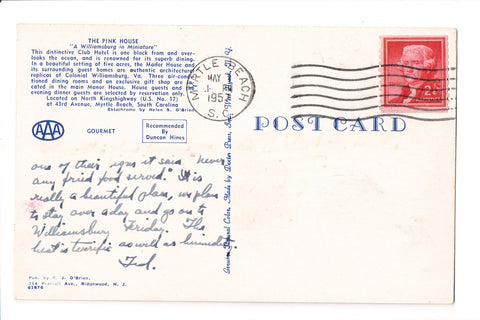 THE PINK HOUSE
"A Williamsburg in Miniature"
This distinctive Club Hotel is one block from and over-
looks the ocean, and is renowned for its superb dining.
In a beautiful setting of five acres, the Manor House and
its surrounding guest homes are authentic architectural
replicas of Colonial Williamsburg, Va. Three air-condi-
tioned dining rooms and an exclusive gift shop are lo-
cated in the main Manor House. House guests and
evening dinner guests are selected by reservation only.
Located on North Kingshighway (U.S. No. 17)
at 43rd Avenue, Myrtle Beach, South Carolina
Ektachrome by Helen S. O'Brien
AAA
GOURMET
Recommended
By
Duncan Hines
MYRTLE BEACH
MAY
195
S. C.
2¢
POST CARD
one of their signs it said "never
any fried food served." It is
really a beautiful place, we plan
to stay over a day and go on to
Williamsburg Friday. The
heat is terrific as well as humidity.
Ted.
Pub. by C. J. O'Brien,
Ave., Ridgewood, N. J.
61876
Genuine Natural Color, Made by Dexter Press, Inc., West Nyack, N. Y.